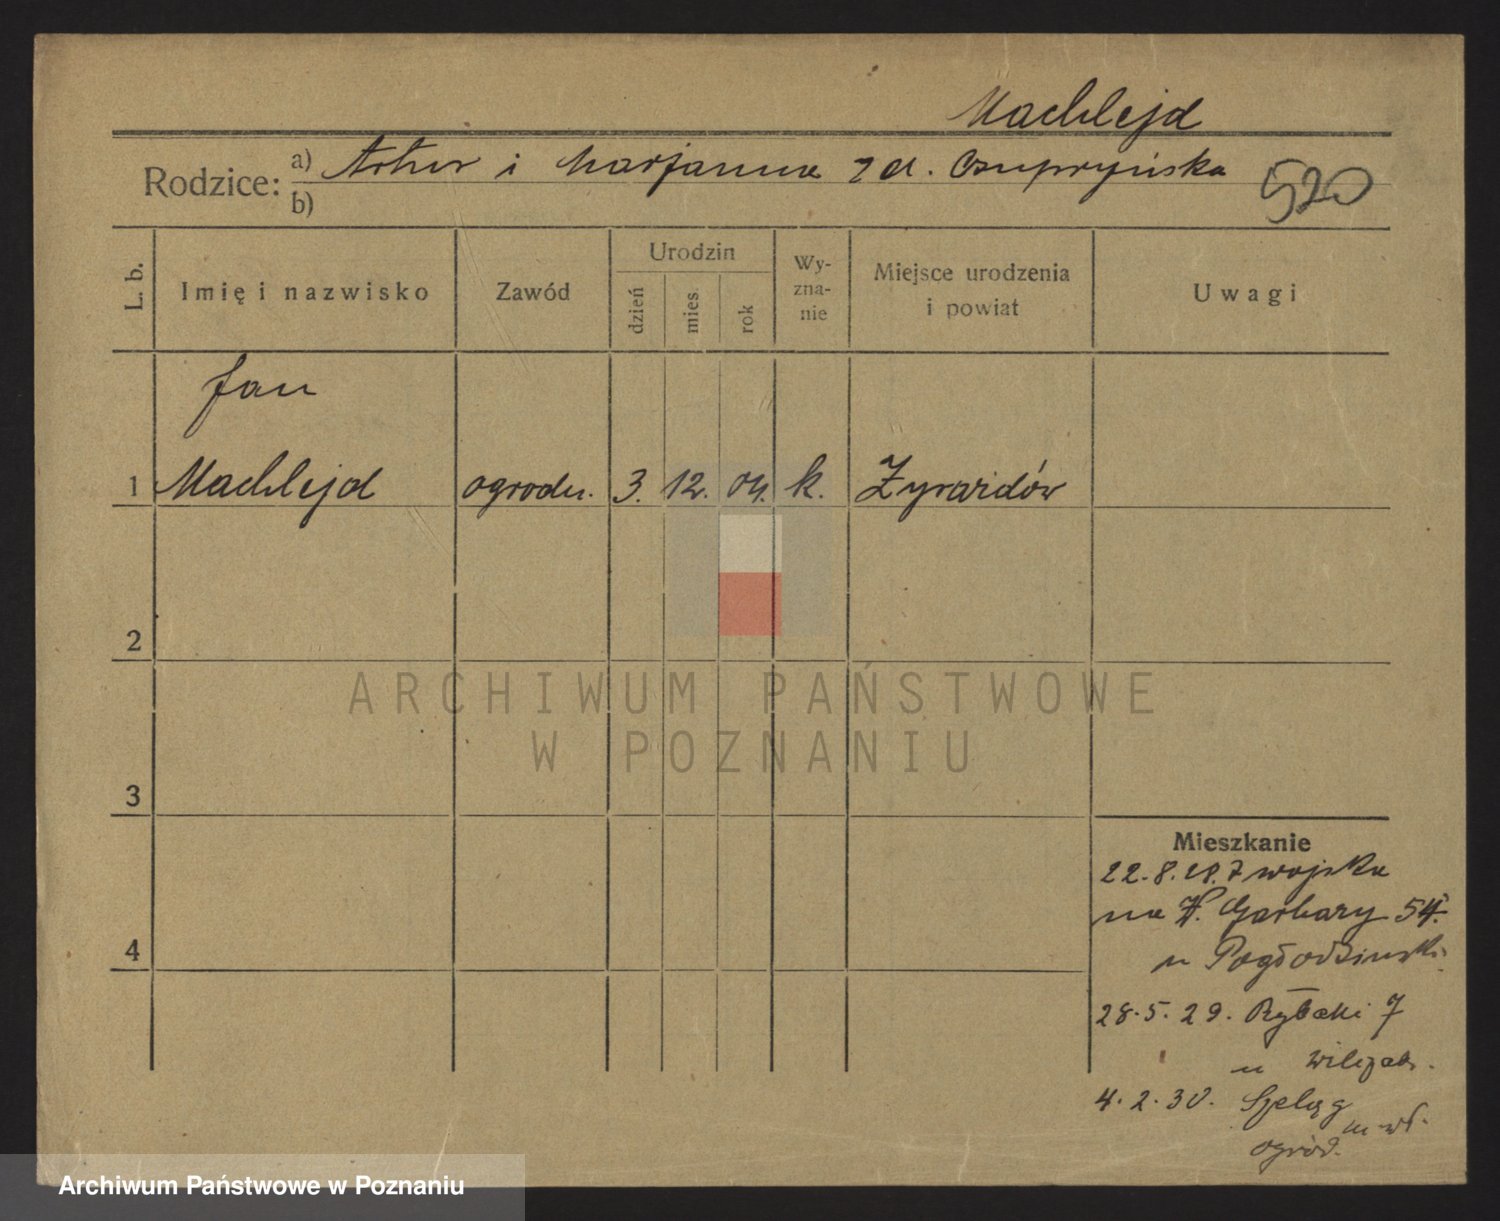 Machlejd
Rodzice: a) Artur i Marjanna z d. Czupryńska
b)
520
L. b.
Imię i nazwisko
Zawód
Urodzin
dzień
mies.
rok
Wy-
zna-
nie
Miejsce urodzenia
i powiat
Uwagi
Jan
1 Machlejd ogrodn. 3. 12. 04. k. Żyrardów
2
ARCHIWUM PAŃSTWOWE
W POZNANIU
3
Mieszkanie
22.8.28. z wojska
na W. Garbary 54.
4
u
28.5.29. Rybaki 7
u
4.2.30. Szeląg
ogród.
Archiwum Państwowe w Poznaniu